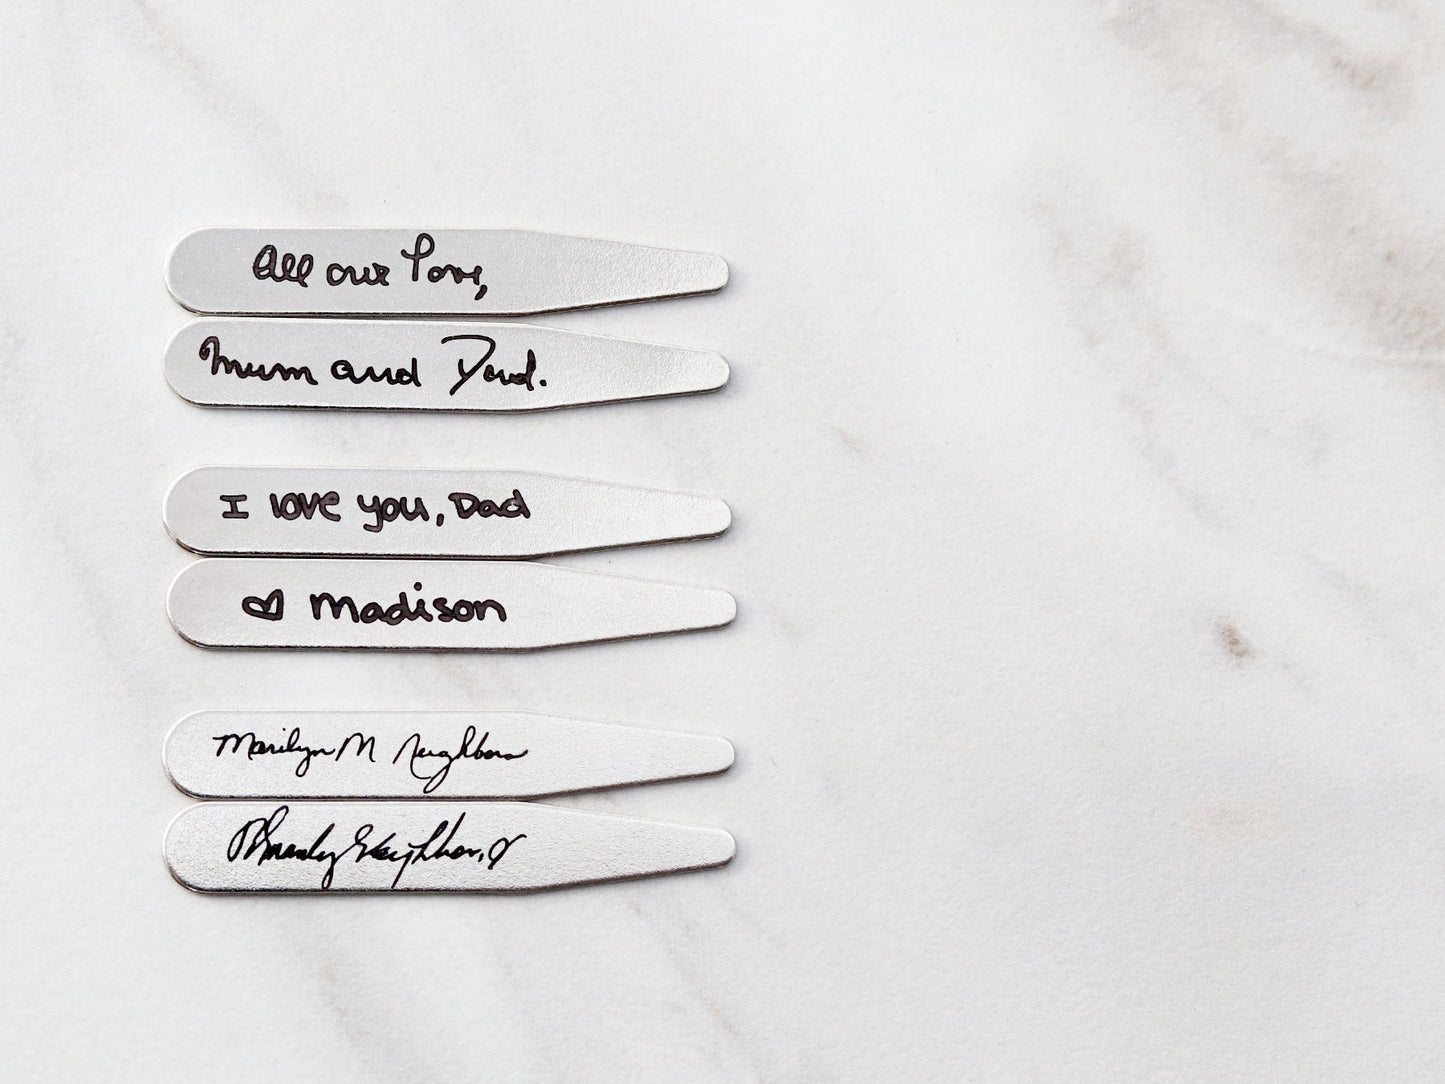 All our love,
Mum and Dad.
I love you, Dad
♥ Madison
Marilyn M Neighbors